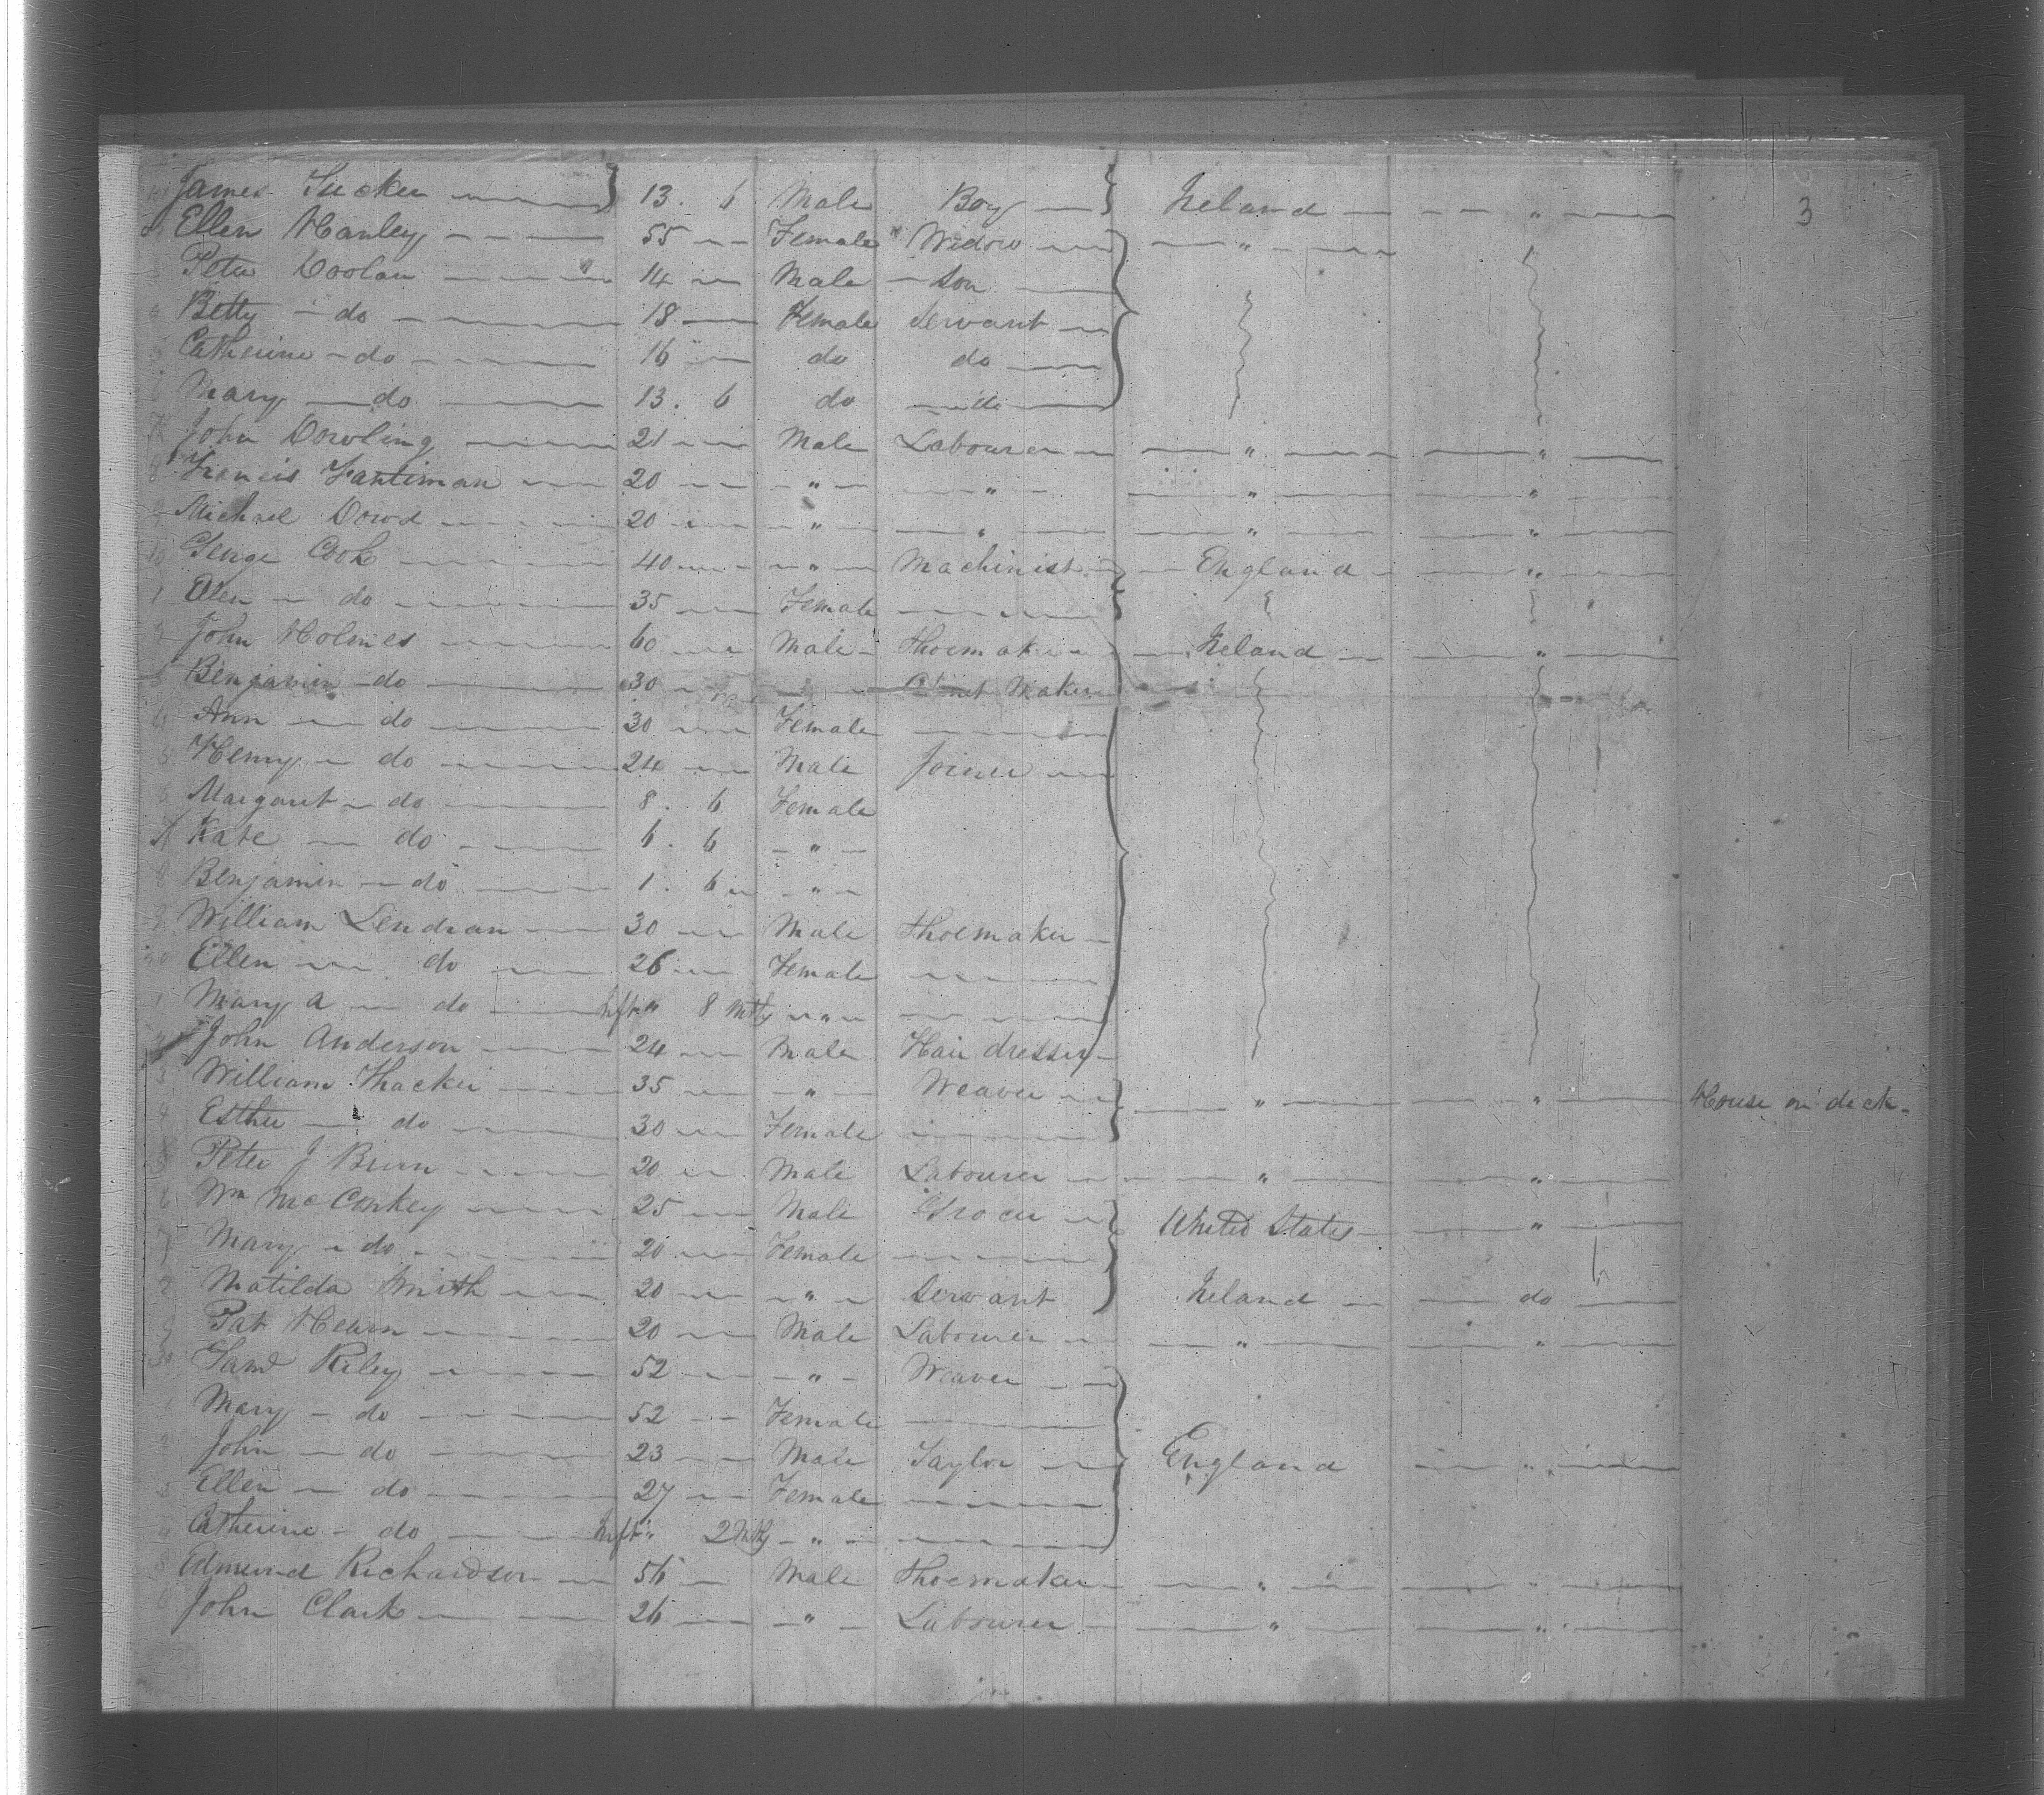 James Tucker } 13. 6 Male Boy } Ireland " 3
Ellen Hanley 55 Female Widow "
Peter Doolan " 14 Male Son
Betty do 18 Female Servant
Catherine do 16 do do
Mary do 13. 6 do do
7 John Dowling 21 Male Labourer " "
8 Francis Fantiman 20 " " " "
9 Michael Dowd 20 " " " "
10 George Cook 40 " Machinist England "
1 Ellen do 35 Female
2 John Holmes 60 Male Shoemaker Ireland "
3 Benjamin do 30 Maker
4 Ann do 30 Female
5 Henry do 24 Male Joiner
6 Margaret do 8. 6 Female
7 Kate do 6. 6 "
8 Benjamin do 1. 6 "
9 William Lendran 30 Male Shoemaker
20 Ellen do 26 Female
1 Mary A do Inft " 8 Mths "
2 John Anderson 24 Male Hair dresser
3 William Thacker 35 " Weaver } " " House on deck
4 Esther do 30 Female
5 Peter J Burn 20 Male Labourer " "
6 Wm McConkey 25 Male Grocer } United States "
7 Mary do 20 Female
8 Matilda Smith 20 " Servant Ireland do
9 Pat Hearn 20 Male Labourer " "
30 Saml Riley 52 " Weaver
1 Mary do 52 Female
2 John do 23 Male Taylor } England "
3 Ellen do 27 Female
4 Catherine do Inft " 2 Mths "
5 Edmund Richardson 56 Male Shoemaker " "
6 John Clark 26 " Labourer " "